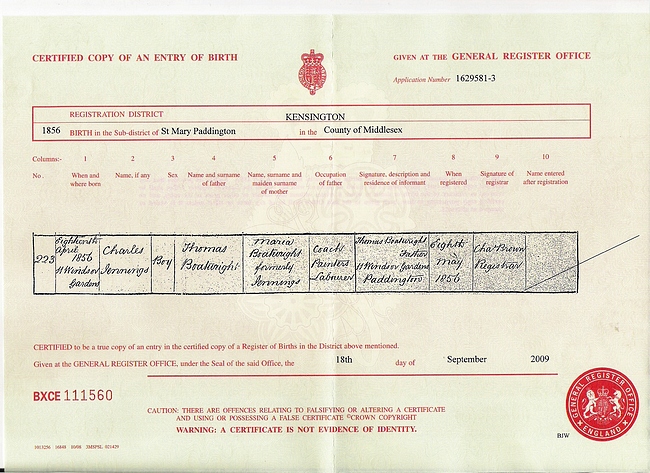 CERTIFIED COPY OF AN ENTRY OF BIRTH
GIVEN AT THE GENERAL REGISTER OFFICE
Application Number 1629581-3
REGISTRATION DISTRICT KENSINGTON
1856 BIRTH in the Sub-district of St Mary Paddington in the County of Middlesex
Columns:- 1 2 3 4 5 6 7 8 9 10
No. When and where born Name, if any Sex Name and surname of father Name, surname and maiden surname of mother Occupation of father Signature, description and residence of informant When registered Signature of registrar Name entered after registration
223 Eighteenth April 1856 11 Windsor Gardens Charles Jennings Boy Thomas Boatwright Maria Boatwright formerly Jennings Coach Painters Labourer Thomas Boatwright Father 11 Windsor Gardens Paddington Eighth May 1856 Chas Brown Registrar
CERTIFIED to be a true copy of an entry in the certified copy of a Register of Births in the District above mentioned.
Given at the GENERAL REGISTER OFFICE, under the Seal of the said Office, the 18th day of September 2009
BXCE 111560
CAUTION: THERE ARE OFFENCES RELATING TO FALSIFYING OR ALTERING A CERTIFICATE
AND USING OR POSSESSING A FALSE CERTIFICATE ©CROWN COPYRIGHT
WARNING: A CERTIFICATE IS NOT EVIDENCE OF IDENTITY.
GENERAL REGISTER OFFICE
ENGLAND